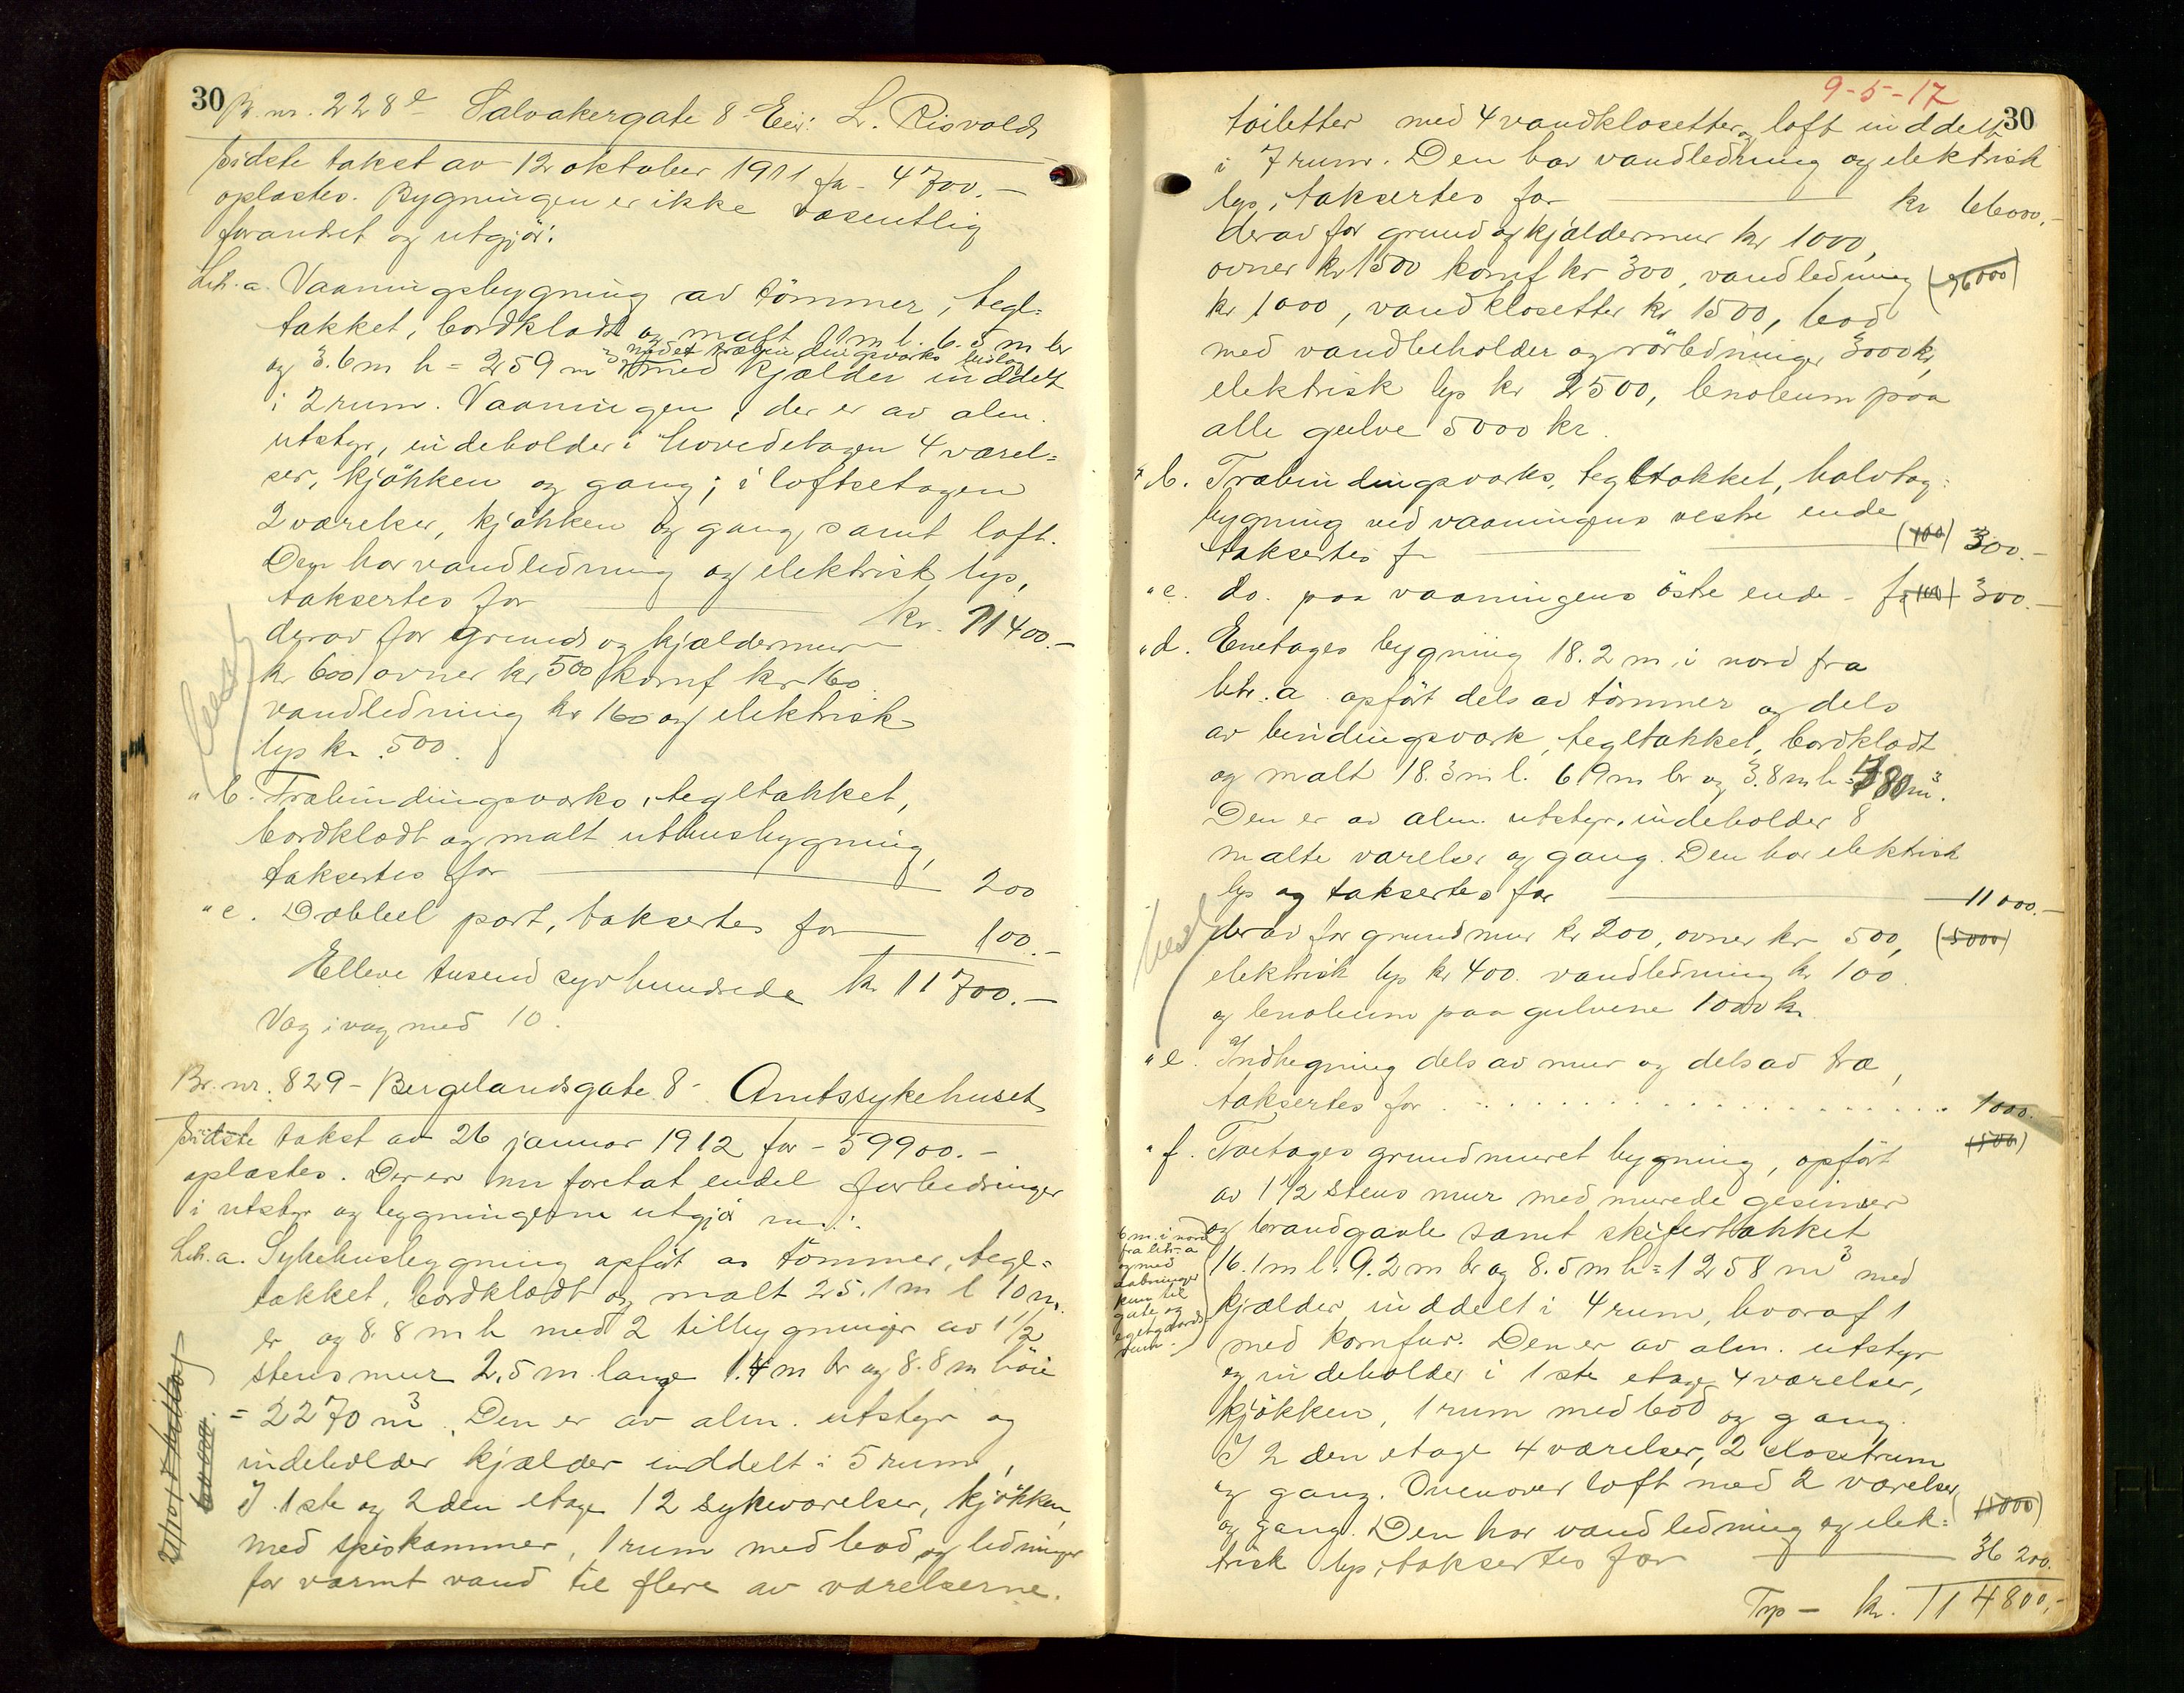 30 Br. nr. 228e Salvakergate 8 Eier: L. Risvold
Sidste takst av 12 oktober 1911 fr - 4700.-
oplæstes. Bygningen er ikke væsentlig
forandret og utgjør:
Litr. a. Vaaningsbygning av tömmer, tegl-
tækket, bordklædt og malt 11 m l. 6.5 m br
og 3.6 m h = 259 m3 med kjælder inddelt
i 2 rum. Vaaningen, der er av alm.
utstyr, indeholder i hovedetagen 4 værel-
ser, kjökken og gang; i loftsetagen
2 værelser, kjökken og gang, samt loft.
Den har vandledning og elektrisk lys,
taksertes for kr. 11400.-
derav for grund og kjældermur
kr 600, ovner kr 500 komf kr 160
vandledning kr 160 og elektrisk
lys kr. 500.
" b. Træbindingsværks, tegltækket,
bordklædt og malt uthusbygning,
taksertes for 200
" c. Dobbel port, taksertes for 100.-
Elleve tusend syv hundrede kr 11700.-
Væg i væg med 10.
Br. nr. 829 - Bergelandsgate 8 - Amtssykehuset
Sidste takst av 26 januar 1912 for - 59900.-
oplæstes. Der er nu foretat endel forbedringer
i utstyr og bygningerne utgjør nu:
Litr. a. Sykehusbygning opført av tömmer, tegl-
tækket, bordklædt og malt 25.1 m l 10 m
br og 8.8 m h med 2 tilbygninger av 1 1/2
stens mur 2.5 m lange 1.4 m br og 8.8 m höie
= 2270 m3. Den er av alm. utstyr og
indeholder kjælder inddelt i 5 rum,
I 1ste og 2den etage 12 sykeværelser, kjökken
med spiskammer, 1 rum med bad og ledninger
for varmt vand til flere av værelserne.
60 000.
9-5-17
30
toiletter med 4 vandklosetter og loft inddelt
i 7 rum. Den har vandledning og elektrisk
lys, taksertes for kr 66000.-
derav for grund og kjældermur kr 1000,
ovner kr 1500 komf kr 300, vandledning (36000)
kr 1000, vandklosetter kr 1500, bad
med vandbeholder og rörledninger 3000 kr,
elektrisk lys kr 2500, linoleum paa
alle gulve 5000 kr.
" b. Træbindingsværks, tegltækket, halvtag-
bygning ved vaaningens vestre ende
taksertes fr (100) 300.-
" c. do. paa vaaningens östre ende - fr (100) 300.-
" d. Enetages bygning 18.2 m i nord fra
litr. a opført dels av tömmer og dels
av bindingsværk, tegltækket, bordklædt
og malt 18.3 m l. 6.9 m br og 3.8 m h = 480 m3.
Den er av alm. utstyr, indeholder 8
malte værelser og gang. Den har elektrisk
lys og taksertes for 11000.-
derav for grundmur kr 200, ovner kr 500, (5000)
elektrisk lys kr 400. vandledning kr 100
og linoleum paa gulvene 1000 kr.
" e. Indhegning dels av mur og dels av træ,
taksertes for 1000.
(500)
" f. Toetages grundmuret bygning, opført
av 1 1/2 stens mur med murede gesimser
og brandgavle samt skifertækket
6 m. i nord
fra litr. a
og med
aabninger
kun til
gate og
eget gaards-
rum.
16.1 m l. 9.2 m br og 8.5 m h = 1258 m3 med
kjælder, inddelt i 4 rum, hvoraf 1
med komfur. Den er av alm. utstyr
og indeholder i 1ste etage 4 værelser,
kjökken, 1 rum med bad og gang.
I 2den etage 4 værelser, 2 closetrum
og gang. Ovenover loft med 2 værelser
og gang. Den har vandledning og elek-
trisk lys, taksertes for 36 200.
Trsp - kr. 114800.-